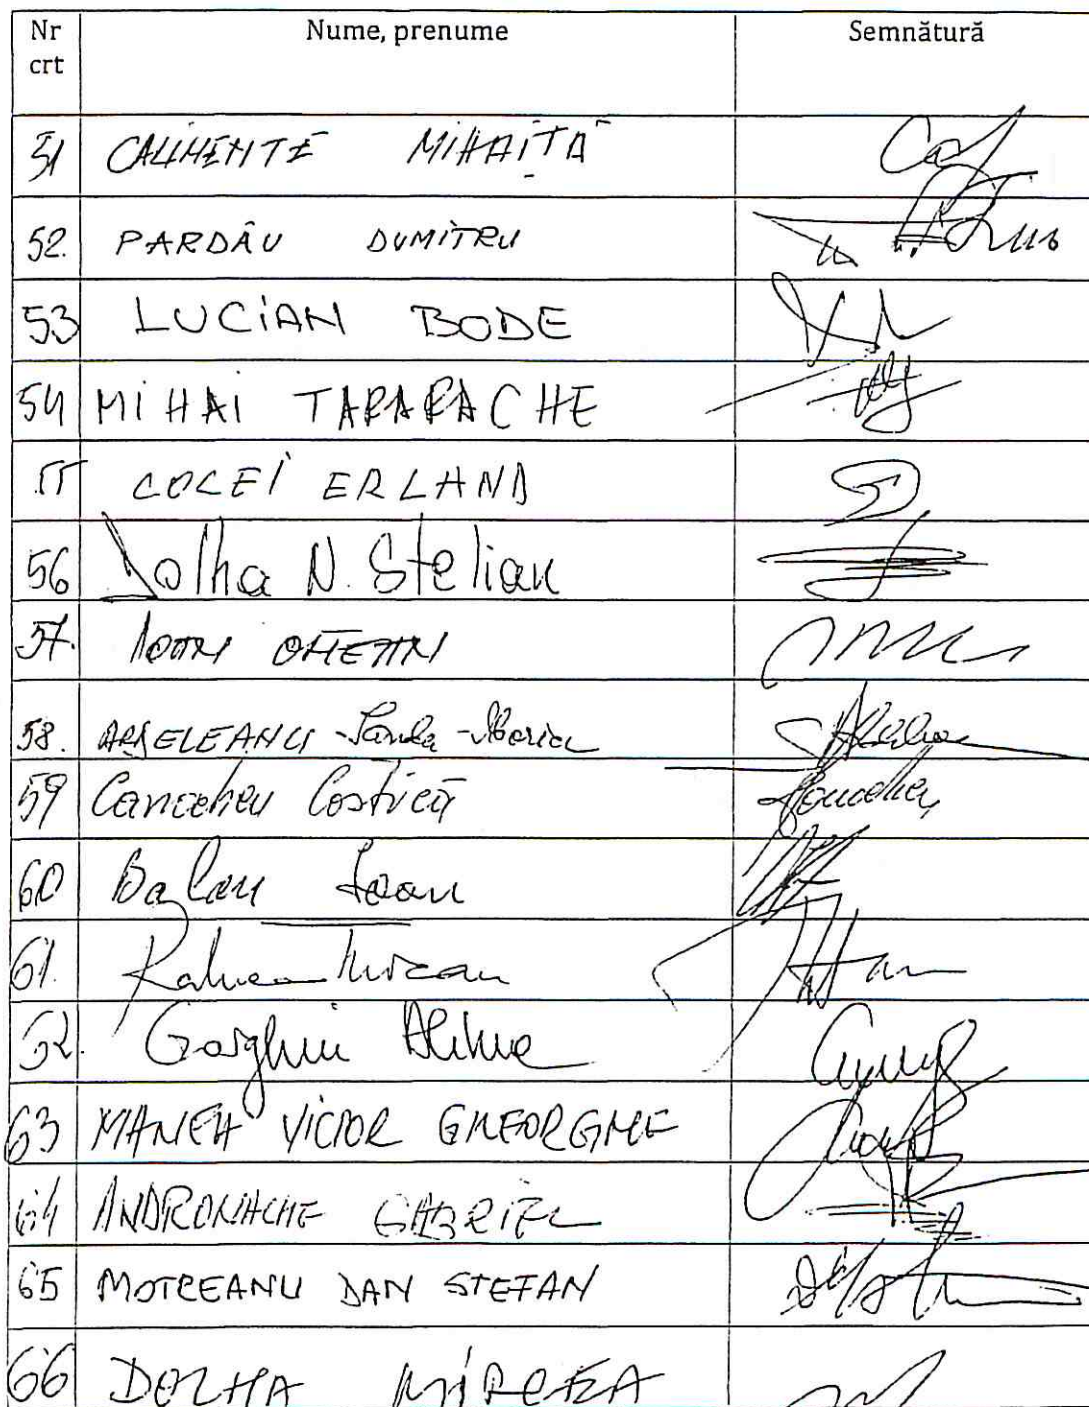 Nr crt Nume, prenume Semnătură
51 CALIMENTE MIHAIȚĂ
52. PARDÂU DUMITRU
53 LUCIAN BODE
54 MIHAI TARARACHE
55 COCEI ERLAND
56 Dolha N. Stelian
57. IOAN OLTEAN
58. ARDELEANU - Sanda - Maria
59 Canacheu Costică
60 Balan Ioan
61. Raluca Turcan
62. Gorghiu Alina
63 MANEA VICTOR GHEORGHE
64 ANDRONACHE GABRIEL
65 MOTREANU DAN STEFAN
66 DOLHA MIRCEA